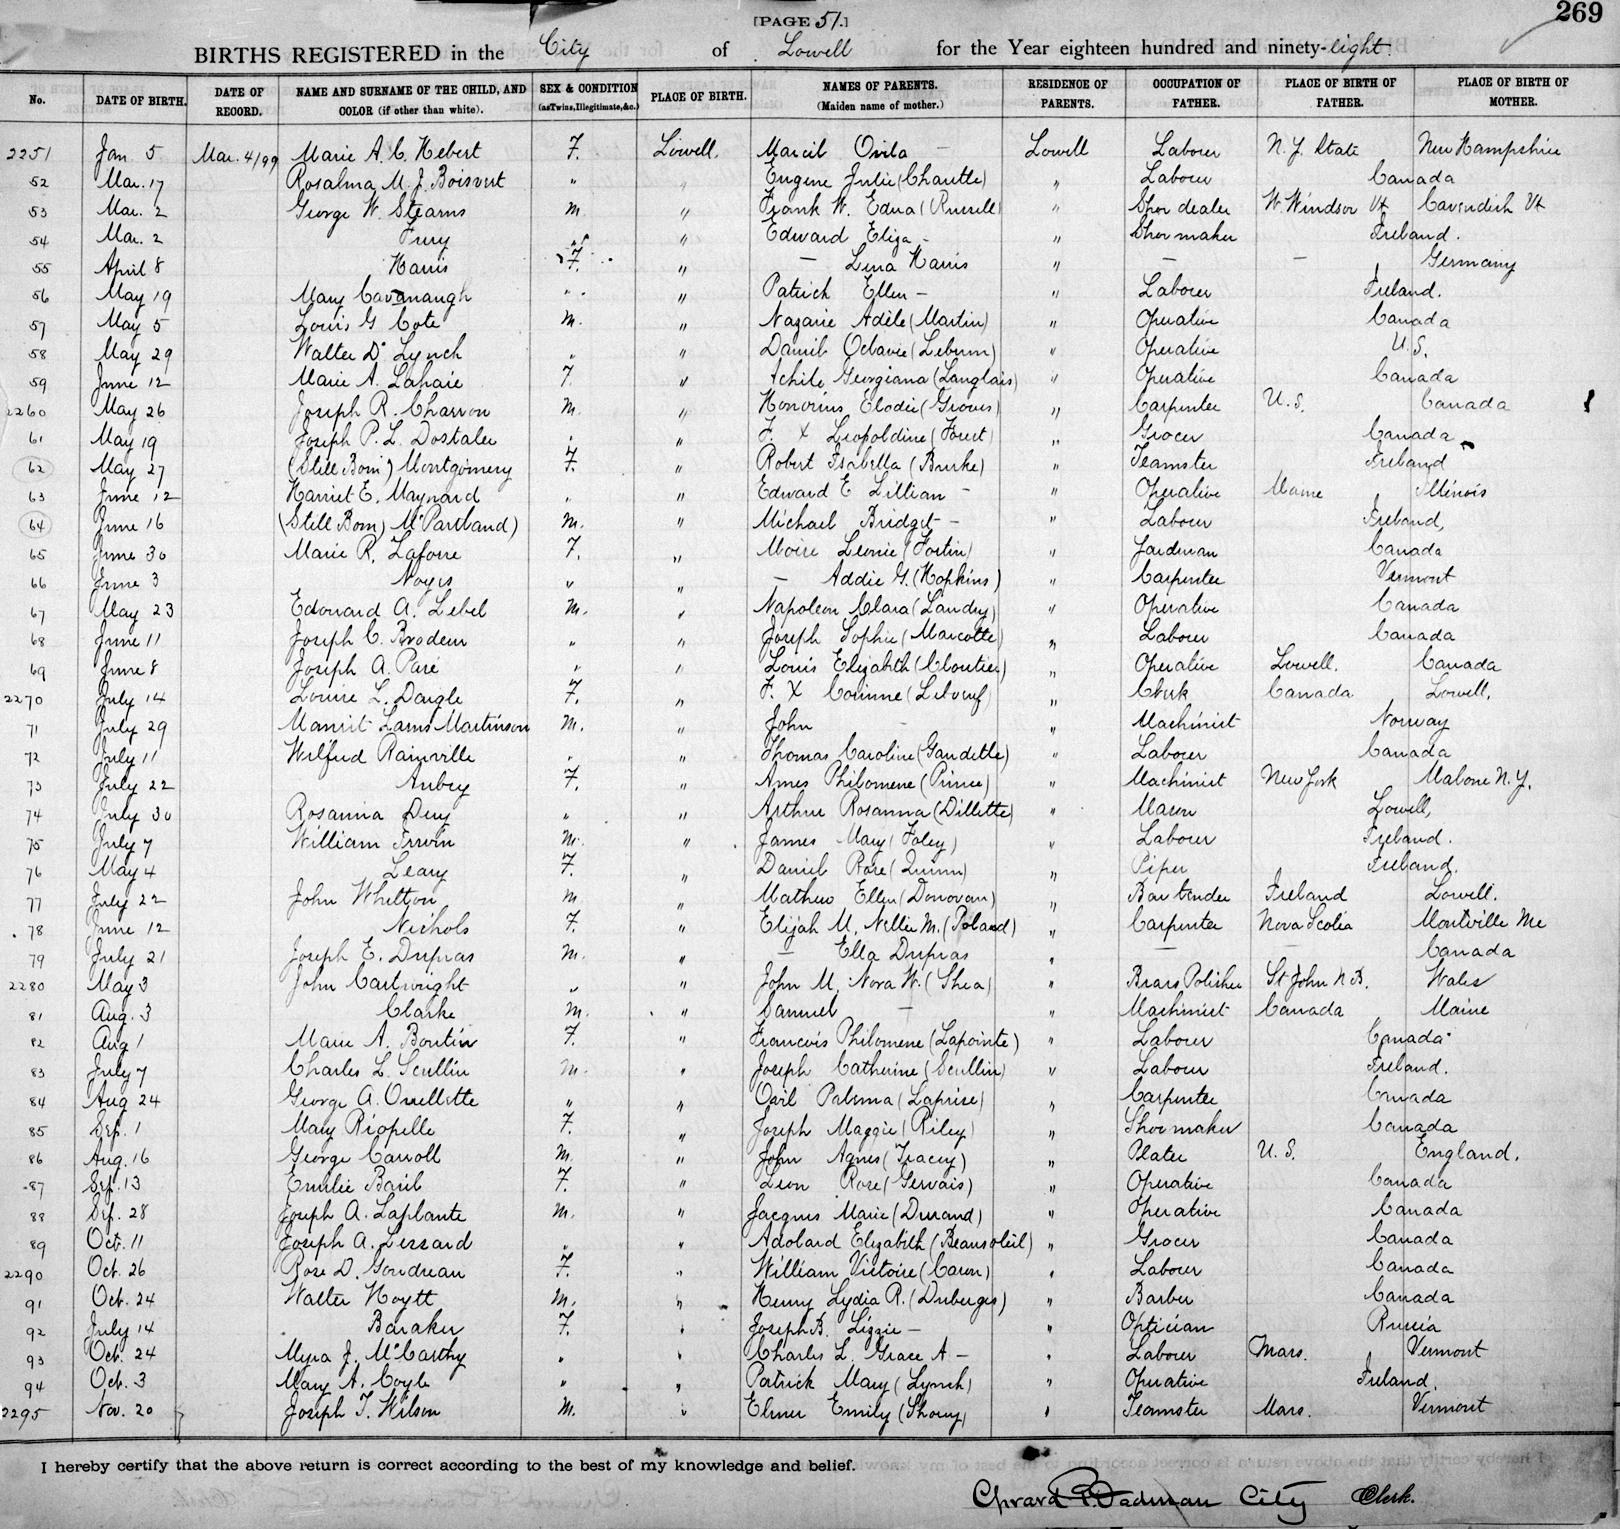 [PAGE 51.]
269
BIRTHS REGISTERED in the City of Lowell for the Year eighteen hundred and ninety-eight.
No. DATE OF BIRTH. DATE OF RECORD. NAME AND SURNAME OF THE CHILD, AND COLOR (if other than white). SEX & CONDITION (as Twins, Illegitimate, &c.) PLACE OF BIRTH. NAMES OF PARENTS. (Maiden name of mother.) RESIDENCE OF PARENTS. OCCUPATION OF FATHER. PLACE OF BIRTH OF FATHER. PLACE OF BIRTH OF MOTHER.
2251 Jan 5 Mar. 4/99 Marie A. C. Hebert F. Lowell. Marcil Ovila – Lowell Laborer N. Y. State New Hampshire
52 Mar. 17 Rosalma M. J. Boisvert " " Eugene Julie (Charette) " Laborer Canada
53 Mar. 2 George W. Stearns M. " Frank W. Edna (Russell) " Shoe dealer W. Windsor Vt Cavendish Vt
54 Mar. 2 Fury " " Edward Eliza – " Shoemaker Ireland.
55 April 8 Harris F. " – Lena Harris " – – Germany
56 May 19 Mary Cavanaugh " " Patrick Ellen – " Laborer Ireland.
57 May 5 Louis G Cote M. " Nazaire Adèle (Martin) " Operative Canada
58 May 29 Walter D. Lynch " " Daniel Octavie (Lebrun) " Operative U.S.
59 June 12 Marie A. Lahaie F. " Achile Georgiana (Langlais) " Operative Canada
2260 May 26 Joseph R. Charron M. " Honorius Elodie (Groves) " Carpenter U.S. Canada
61 May 19 Joseph P. L. Dostaler " " F. X Leopoldine (Forest) " Grocer Canada
62 May 27 (Still Born) Montgomery F. " Robert Isabella (Burke) " Teamster Ireland
63 June 12 Harriet E. Maynard " " Edward E Lillian – " Operative Maine Illinois
64 June 16 (Still Born) McPartland) M. " Michael Bridget – " Laborer Ireland,
65 June 30 Marie R. F. " Moise Leonie (Fortin) " Canada
66 June 3 Noyes " " – Addie G. (Hopkins) " Carpenter Vermont
67 May 23 Edouard A. Lebel M. " Napoleon Clara (Landry) " Operative Canada
68 June 11 Joseph C. Brodeur " " Joseph Sophie (Marcotte) " Laborer Canada
69 June 8 Joseph A. Paré " " Louis Elizabeth (Cloutier) " Operative Lowell. Canada
2270 July 14 Louise L. Daigle F. " F. X Corinne (Leboeuf) " Clerk Canada Lowell.
71 July 29 Martinson M. " John – " Machinist Norway
72 July 11 Wilfred Rainville " " Thomas Caroline (Gaudette) " Laborer Canada
73 July 22 Aubry F. " Ames Philomene (Prince) " Machinist New York Malone N.Y.
74 July 30 Rosanna Dery " " Arthur Rosanna (Dillette) " Mason Lowell,
75 July 7 William Irwin M. " James Mary (Foley) " Laborer Ireland.
76 May 4 Leary F. " Daniel Rose (Quinn) " Piper Ireland.
77 July 22 John Whelton M " Mathew Ellen (Donovan) " Bartender Ireland Lowell.
78 June 12 Nichols F. " Elijah M. Nellie M. (Poland) " Carpenter Nova Scotia Montville Me
79 July 21 Joseph E. Dupras M. " – Ella Dupras " – – Canada
2280 May 3 John Cartwright " " John M. Nora W. (Shea) " Brass Polisher St John N.B. Wales
81 Aug. 3 Clarke M. " Samuel – " Machinist Canada Maine
82 Aug 1 Marie A. Boutin F. " Francois Philomene (Lapointe) " Laborer Canada
83 July 7 Charles L. Scullin M. " Joseph Catherine (Scullin) " Laborer Ireland.
84 Aug 24 George A. Ouellette " " Ovil Palema (Laprise) " Carpenter Canada
85 Sep. 1 Mary Riopelle F. " Joseph Maggie (Riley) " Shoemaker Canada
86 Aug. 16 George Carroll M. " John Agnes (Tracey) " Plater U.S. England.
87 Sep. 13 Emilie Baril F. " Leon Rose (Gervais) " Operative Canada
88 Sep. 28 Joseph A. Laplante M. " Jacques Marie (Durand) " Operative Canada
89 Oct. 11 Joseph A. Lessard " " Adolard Elizabeth (Beausoleil) " Grocer Canada
2290 Oct. 26 Rose D. Goudreau F. " William Victoire (Caron) " Laborer Canada
91 Oct. 24 Walter Hoytt M. " Henry Lydia R. (Duberger) " Barber Canada
92 July 14 Baraker F. " Joseph B. Lizzie – " Optician Russia
93 Oct. 24 Myra J. McCarthy " " Charles L. Grace A – " Laborer Mass. Vermont
94 Oct. 3 Mary A. Coyle " " Patrick Mary (Lynch) " Operative Ireland.
2295 Nov. 20 Joseph T. Wilson M. " Elmer Emily (Shorey) " Teamster Mass. Vermont
I hereby certify that the above return is correct according to the best of my knowledge and belief.
Girard P. Dadman City Clerk.